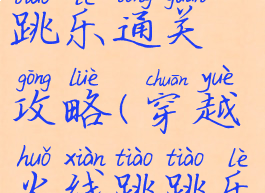 跳乐通关
gōng lüè chuān yuè
攻略(穿越
huǒ xiàn tiào tiào lè
火线跳跳乐